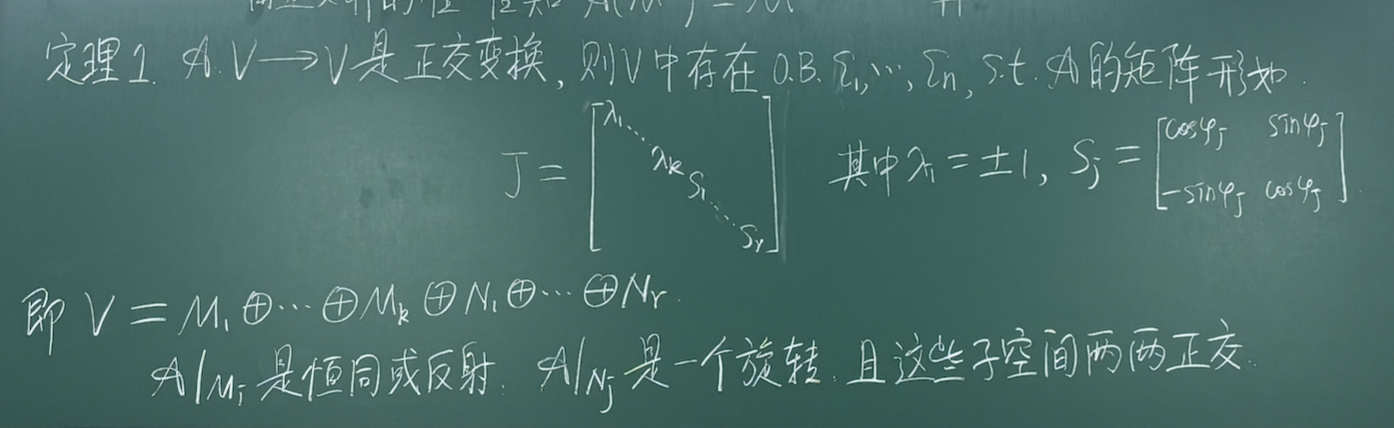 定理1. 𝒜: V → V 是正交变换, 则V中存在 O.B. ξ₁, ⋯, ξₙ, s.t. 𝒜 的矩阵形如
J = [λ₁ ⋱ λₖ S₁ ⋱ Sᵣ] 其中 λᵢ = ±1, Sⱼ = [cosφⱼ sinφⱼ -sinφⱼ cosφⱼ]
即 V = M₁ ⊕ ⋯ ⊕ Mₖ ⊕ N₁ ⊕ ⋯ ⊕ Nᵣ.
𝒜|Mᵢ 是恒同或反射. 𝒜|Nⱼ 是一个旋转. 且这些子空间两两正交.